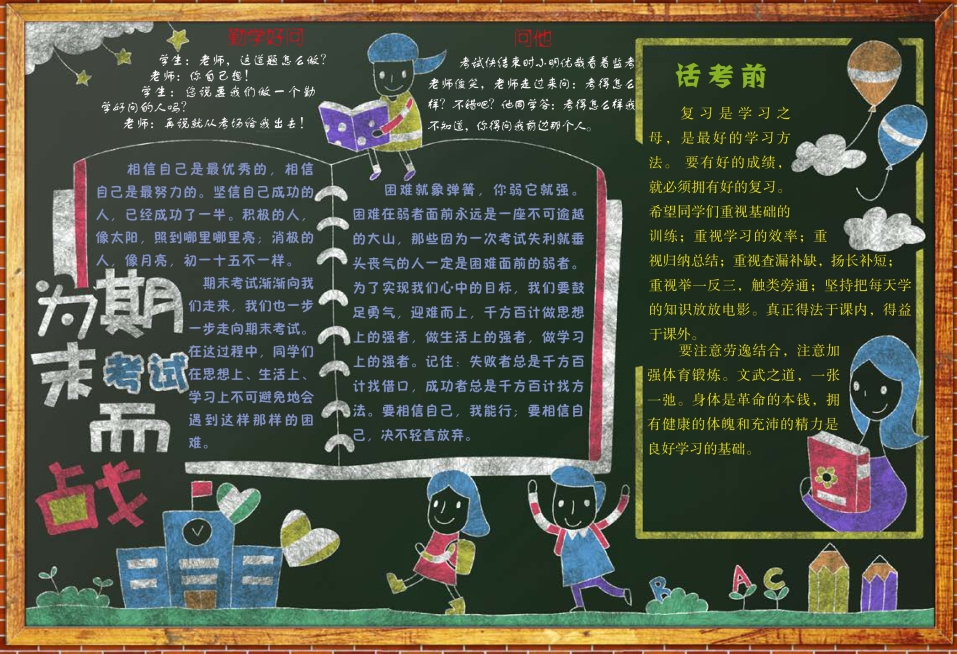 勤学好问
学生：老师，这道题怎么做？
老师：你自己想！
学生：您说要我们做一个勤
学好问的人吗？
老师：再说就从考场给我出去！
问他
考试快结束时小明优哉看着监考
老师傻笑，老师走过来问：考得怎么
样？不错吧？他同学答：考得怎么样我
不知道，你得问我前边那个人。
相信自己是最优秀的，相信
自己是最努力的。坚信自己成功的
人，已经成功了一半。积极的人，
像太阳，照到哪里哪里亮；消极的
人，像月亮，初一十五不一样。
期末考试渐渐向我
们走来，我们也一步
一步走向期末考试。
在这过程中，同学们
在思想上、生活上、
学习上不可避免地会
遇到这样那样的困
难。
困难就象弹簧，你弱它就强。
困难在弱者面前永远是一座不可逾越
的大山，那些因为一次考试失利就垂
头丧气的人一定是困难面前的弱者。
为了实现我们心中的目标，我们要鼓
足勇气，迎难而上，千方百计做思想
上的强者，做生活上的强者，做学习
上的强者。记住：失败者总是千方百
计找借口，成功者总是千方百计找方
法。要相信自己，我能行；要相信自
己，决不轻言放弃。
为期
末考试
而
战
话考前
复习是学习之
母，是最好的学习方
法。 要有好的成绩，
就必须拥有好的复习。
希望同学们重视基础的
训练；重视学习的效率；重
视归纳总结；重视查漏补缺，扬长补短；
重视举一反三，触类旁通；坚持把每天学
的知识放放电影。真正得法于课内，得益
于课外。
要注意劳逸结合，注意加
强体育锻炼。文武之道，一张
一弛。身体是革命的本钱，拥
有健康的体魄和充沛的精力是
良好学习的基础。
B A C